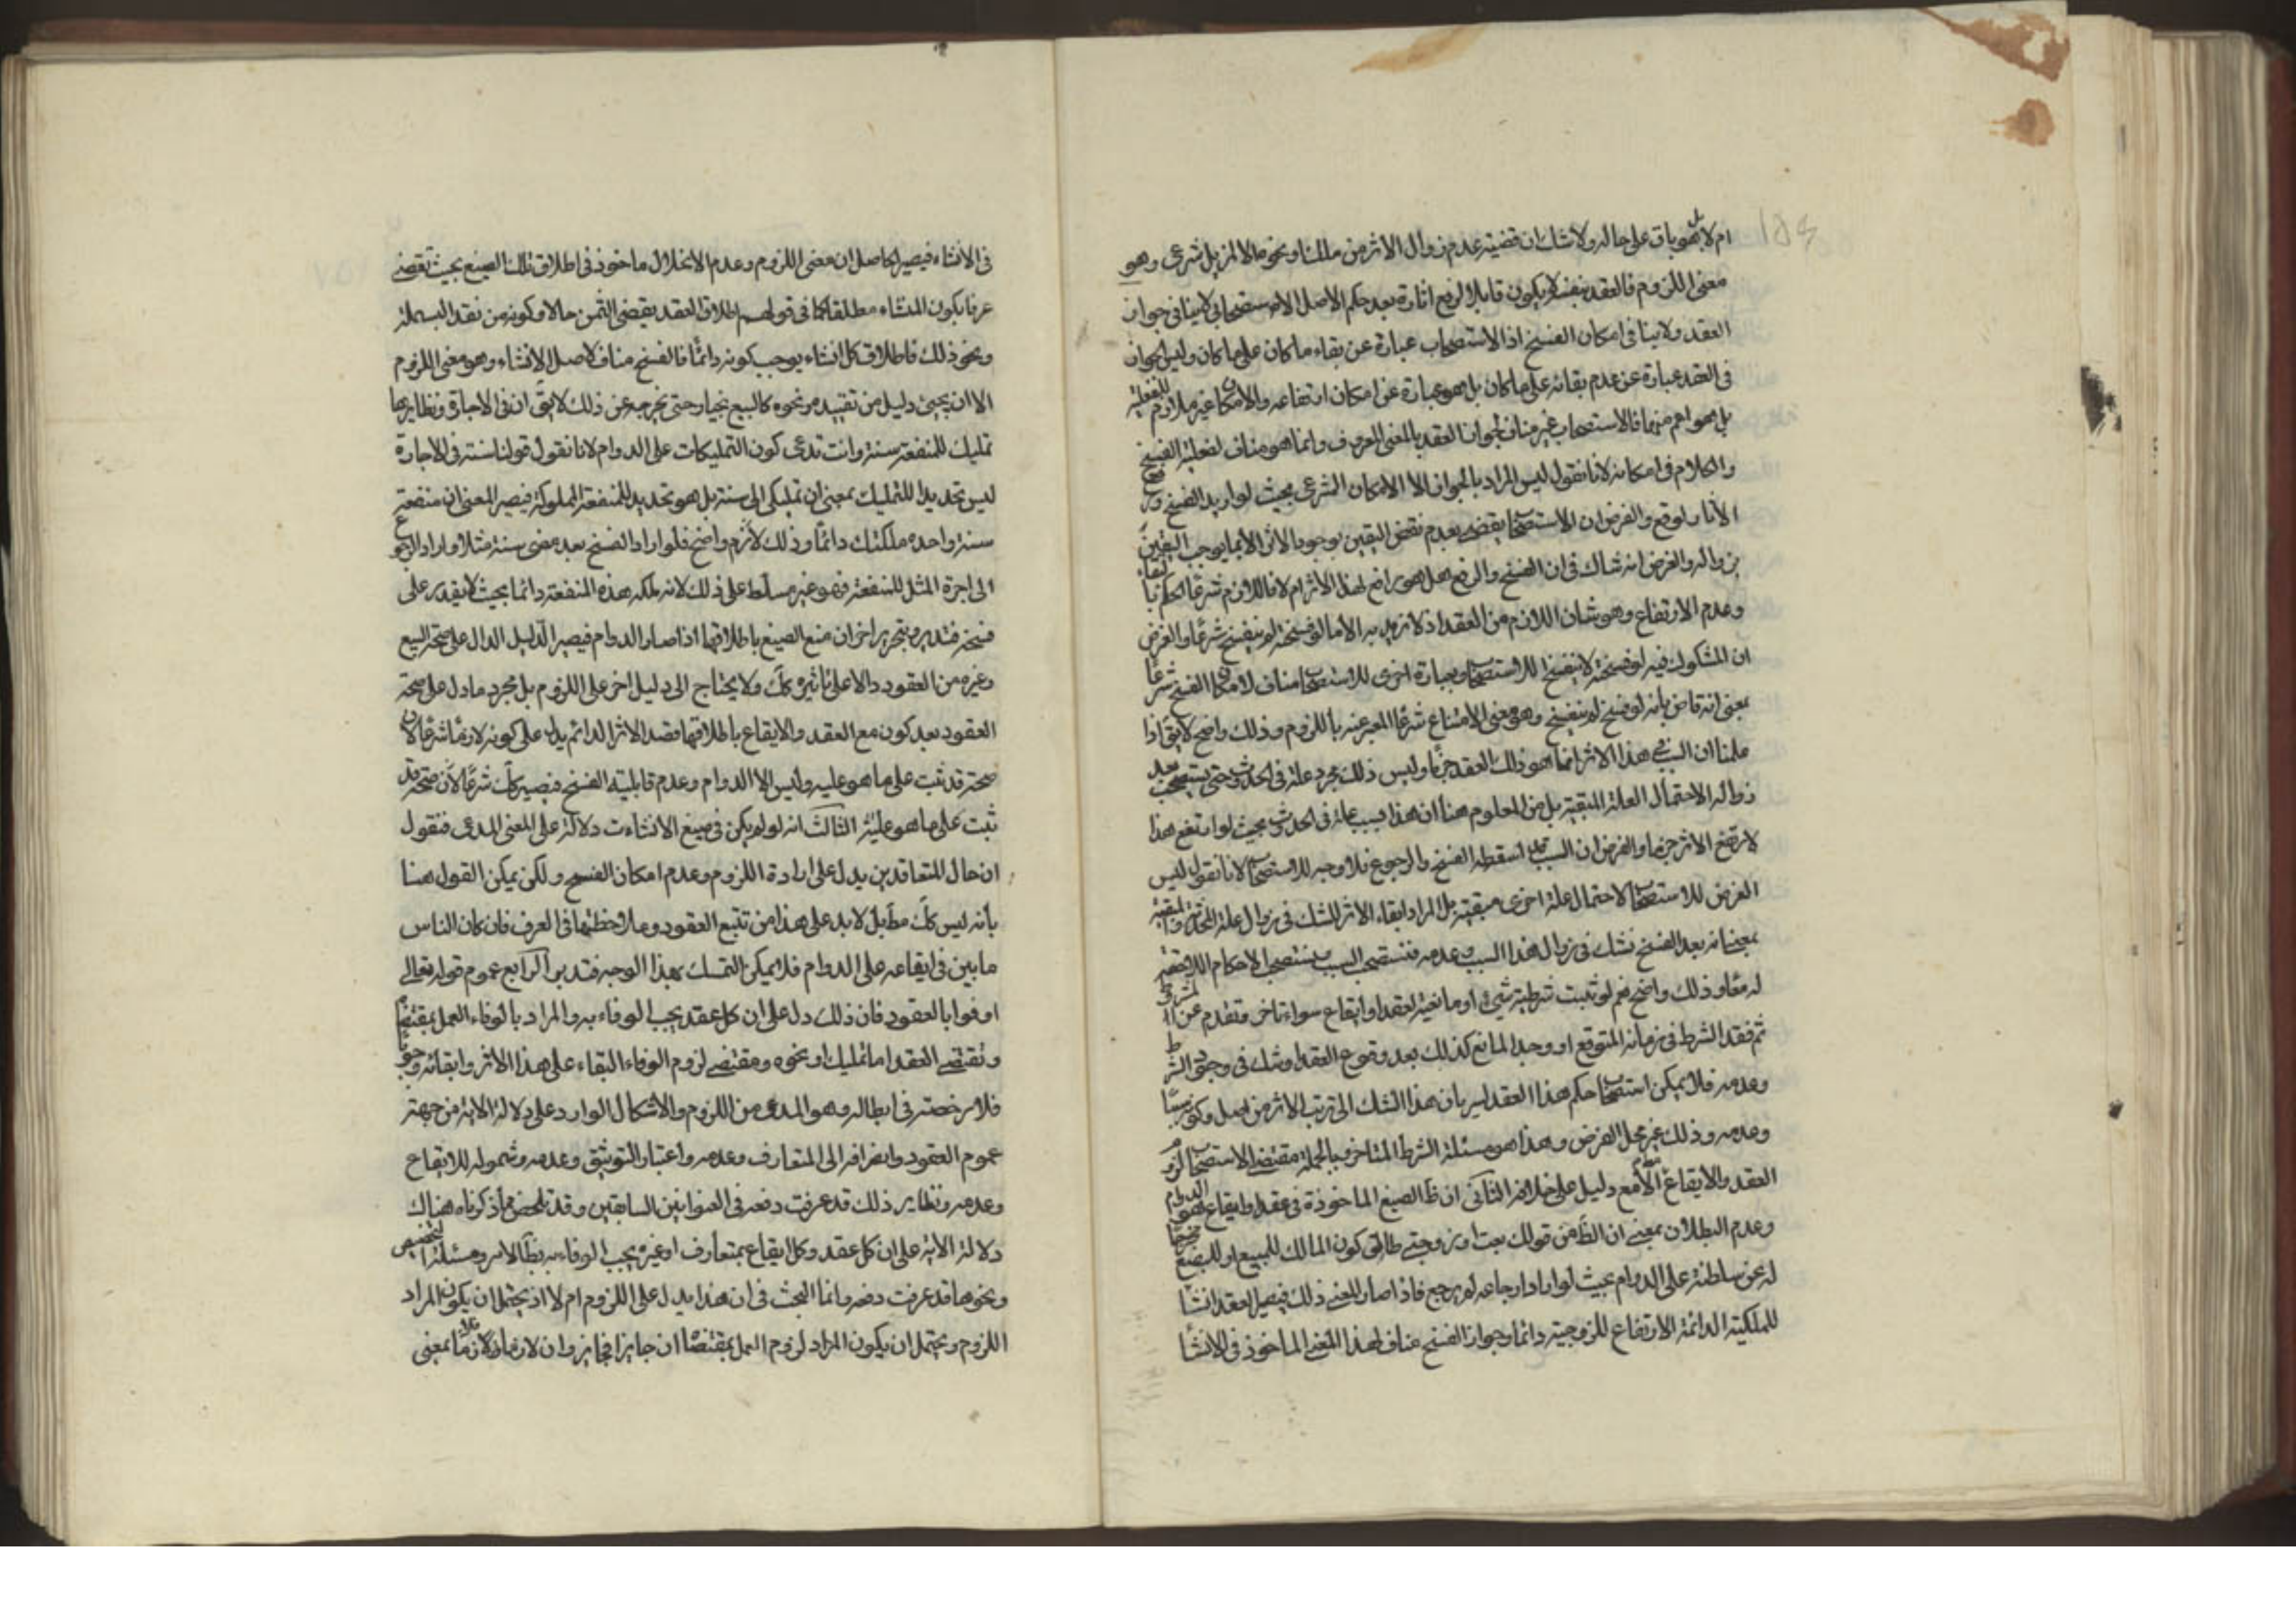 ام لا بل هو باق على حاله ولا شك ان قضية عدم زوال الاثر من ملك او نحوه الا لمزيل شرعى وهو
معنى اللزوم فالعقد بنفسه لا يكون قابلا لرفع اثاره بعد حكم الاصل الاستصحابى لا ينافى جواز
العقد ولا ينافى امكان الفسخ اذ الاستصحاب عبارة عن بقاء ما كان على ما كان وليس الجواز
فى العقد عبارة عن عدم بقائه على ما كان بل هو عبارة عن امكان ارتفاعه والامكان غير ملازم للفعلية
بل هو اعم منهما فالاستصحاب غير مناف لجواز العقد بالمعنى المعروف وانما هو مناف لفعلية الفسخ
والكلام فى امكانه لانا نقول ليس المراد بالجواز الا الامكان الشرعى بحيث لو اريد الفسخ ورفع
الاثار لوقع والفرض ان الاستصحاب يقضى بعدم نقض اليقين بوجود الاثر الا بما يوجب اليقين
بزواله والفرض انه شاك فى ان الفسخ والرفع هل هو رافع لهذا الاثر ام لا فاللازم شرعا الحكم بالبقاء
وعدم الارتفاع وهو شان اللازم من العقد اذ لا نريد به الا ما لو فسخته لم ينفسخ شرعا والفرض
ان المشكوك فيه لو فسخته لا ينفسخ للاستصحاب وبعبارة اخرى للاستصحاب مناف لامكان الفسخ شرعا
بمعنى انه قاض بأنه لو فسخ لم ينفسخ وهو معنى الامتناع شرعا المعبر عنه باللزوم وذلك واضح لا يق اذا
علمنا ان السبب فى هذا الاثر انما هو ذلك العقد جزما وليس ذلك مجرد علة فى الحدوث حتى يستصحب بعد
زواله الاحتمال العلة المبقية بل من المعلوم هنا ان هذا سبب علة فى الحدوث بحيث لو ارتفع هذا
لارتفع الاثر جزما والفرض ان السبب قد اسقطه الفسخ والرجوع فلا وجه للاستصحاب لانا نقول ليس
الغرض للاستصحاب لاحتمال علة اخرى مبقية بل المراد ابقاء الاثر للشك فى زوال علة المحدثة والمبقية
بمعنى انه بعد الفسخ نشك فى زوال هذا السبب وعدمه فنستصحب السبب ونستصحب الاحكام اللاحقة
له معا وذلك واضح نعم لو ثبت شرطية شئ او مانعية لعقد او ايقاع سواء تاخر وتقدم عن المشروط
ثم فقد الشرط فى زمانه المتوقع او وجد المانع كذلك بعد وقوع العقد او شك فى وجود الشرط
وعدمه فلا يمكن استصحاب حكم هذا العقد لسريان هذا الشك الى ترتب الاثر من اصل وكونه سببا
وعدمه وذلك غير محل الفرض وهذا هو مسئلة الشرط المتاخر وبالجملة مقتضى الاستصحاب لزوم
العقد والايقاع مطلقا الا مع دليل على خلافه الثانى ان ظ الصيغ الماخوذة فى عقد او ايقاع هو الدوام
وعدم البطلان بمعنى ان الظ من قولك بعت او زوجتى طالق كون المالك للمبيع او للبضع مخرجا
له عن سلطنته على الدوام بحيث لو اراد ارجاعه لم يرجع فاذا صار المعنى ذلك فيصير العقد انشاء
للملكية الدائمة الارتفاع للزوجية دائما وجواز الفسخ مناف لهذا المعنى الماخوذ فى الانشا
فى الانشاء فيصير الحاصل ان معنى اللزوم وعدم الانحلال ماخوذ فى اطلاق تلك الصيغ بحيث تقضى
عرفا بكون المنشاء مطلقا كما فى قولهم اطلاق العقد يقتضى الثمن حالا وكونه من نقد البلد
ونحو ذلك فاطلاق كل انشاء يوجب كونه دائما فالفسخ مناف لاصل الانشاء وهو معنى اللزوم
الا ان يجئ دليل من تقييد ونحوه كالبيع بخيار حتى يخرجه عن ذلك لا يق ان فى الاجارة ونظايرها
تمليك للمنفعة سنة وانت تدعى كون التمليكات على الدوام لانا نقول قولنا سنة فى الاجارة
ليس تحديدا للتمليك بمعنى ان تمليكى الى سنة بل هو تحديد للمنفعة المملوكة فيصير المعنى ان منفعة
سنة واحدة ملكتك دائما وذلك لازم واضح فلو اراد الفسخ بعد مضى سنة مثلا واراد الرجوع
الى اجرة المثل للمنفعة فهو غير مسلط على ذلك لانه ملكه هذه المنفعة دائما بحيث لا يقدر على
فسخه فتدبر وبتحرير اخر ان منع الصيغ باطلاقها اذا صار الدوام فيصير الدليل الدال على صحة البيع
وغيره من العقود دالا على تاثيره كك ولا يحتاج الى دليل اخر على اللزوم بل مجرد ما دل على صحة
العقود بعد كون مع العقد والايقاع باطلاقهما قصد الاثر الدائم يدل على كونه لازما شرعا لان
صحته قد ثبت على ما هو عليه وليس الا الدوام وعدم قابليته الفسخ فيصير كك شرعا لان صحته قد
ثبت على ما هو عليه الثالث انه لو لم يكن فى صيغ الانشاءت دلالة على المعنى المدعى فنقول
ان حال المتعاقدين يدل على ارادة اللزوم وعدم امكان الفسخ ولكن يمكن القول هنا
بأنه ليس كك مط بل لا بد على هذا من تتبع العقود وملاحظتها فى العرف فان كان الناس
مابين فى ايقاعه على الدوام فلا يمكن التمسك بهذا الوجه فتدبر الرابع عموم قوله تعالى
اوفوا بالعقود فان ذلك دل على ان كل عقد يجب الوفاء به والمراد بالوفاء العمل بمقتضاه
ومقتضى العقد اما تمليك او نحوه ومقتضى لزوم الوفاء البقاء على هذا الاثر وابقائه وجوبا
فلا رخصة فى ابطاله وهو المدعى من اللزوم والاشكال الوارد على دلالة الاية من جهة
عموم العقود وانصرافه الى المتعارف وعدمه واعتبار التوثيق وعدمه وشموله للايقاع
وعدمه ونظاير ذلك قد عرفت دفعه فى العنوانين السابقين وقد تلخص مما ذكرناه هناك
دلالة الاية على ان كل عقد وكل ايقاع بمتعارف او غيره يجب الوفاء به بظ الامر ومسئلة التخصيص
ونحوها قد عرفت دفعه وانما البحث فى ان هذا يدل على اللزوم ام لا اذ يحتمل ان يكون المراد
اللزوم ويحتمل ان يكون المراد لزوم العمل بمقتضاه ان جايزا فجايز وان لازما فلازما بمعنى